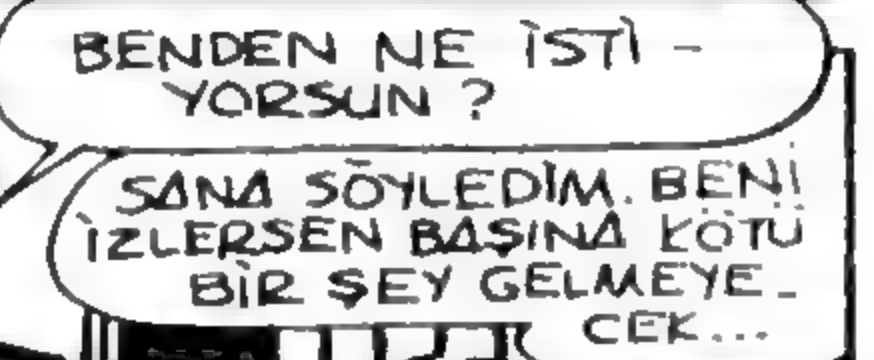 BENDEN NE İSTİ -
YORSUN ?
SANA SÖYLEDİM. BENİ
İZLERSEN BAŞINA KÖTÜ
BİR ŞEY GELMEYE_
CEK...